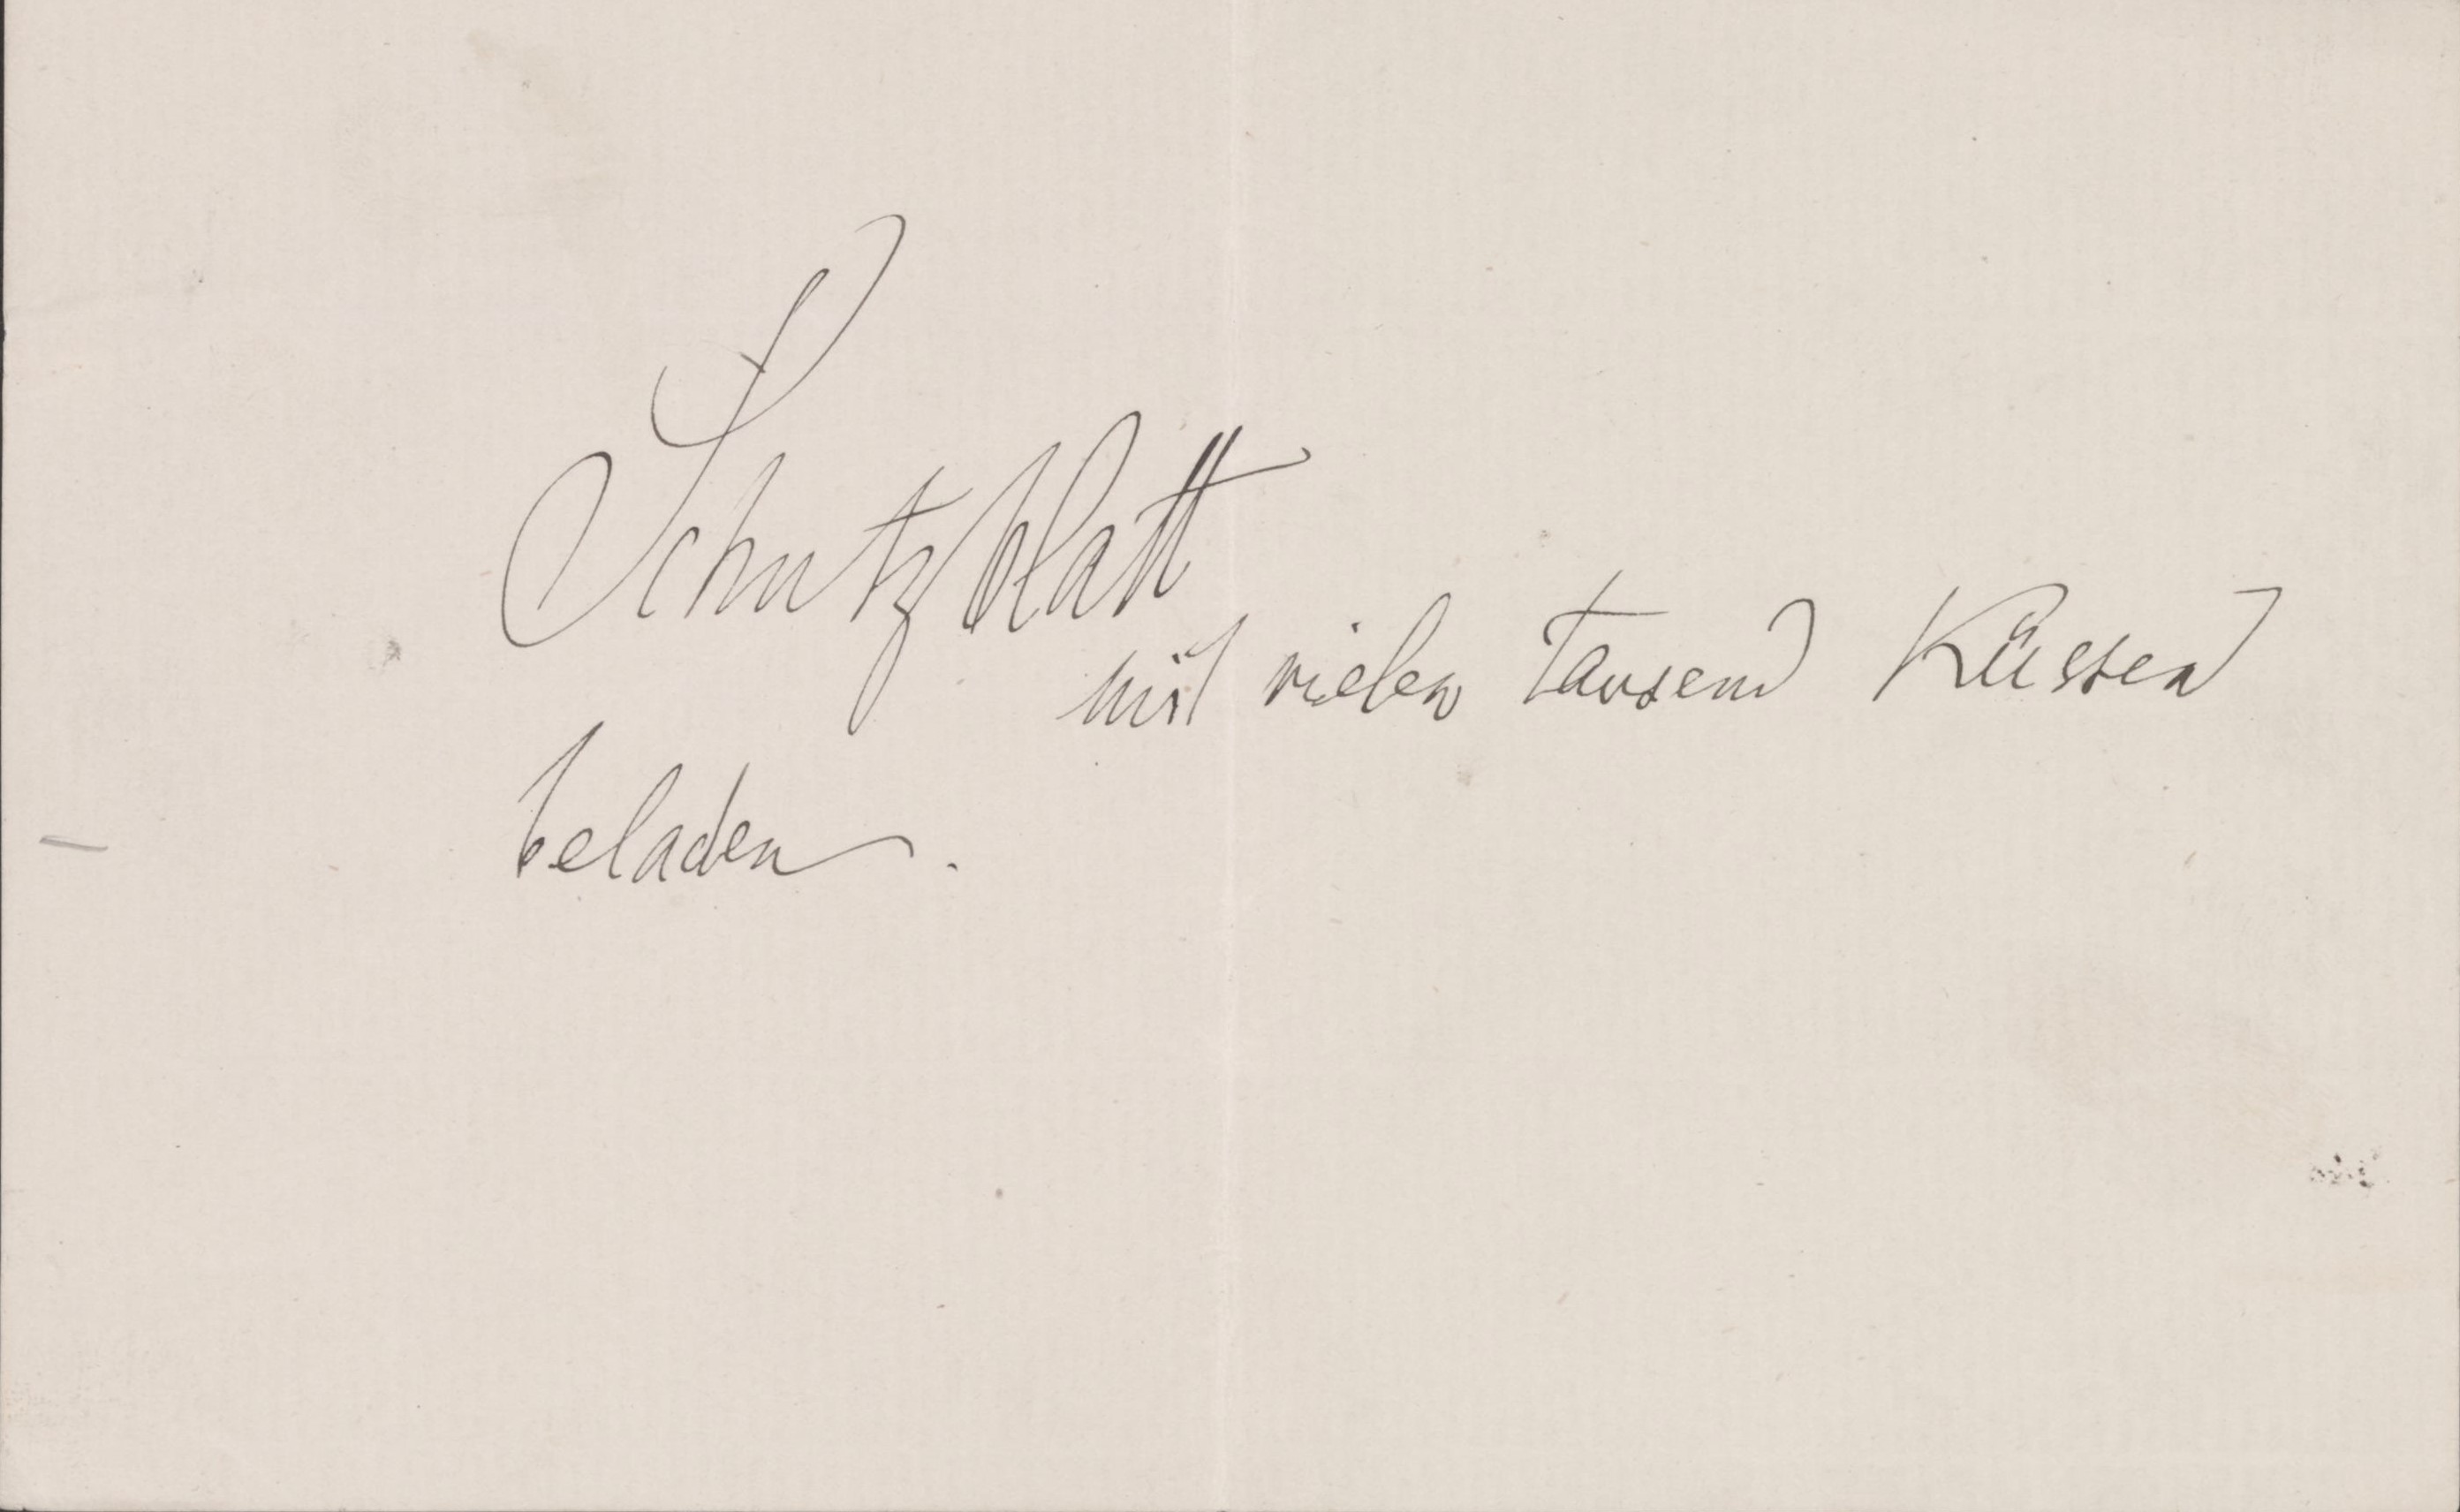 Schutzblatt
mit vielen tausend Küssen
beladen.